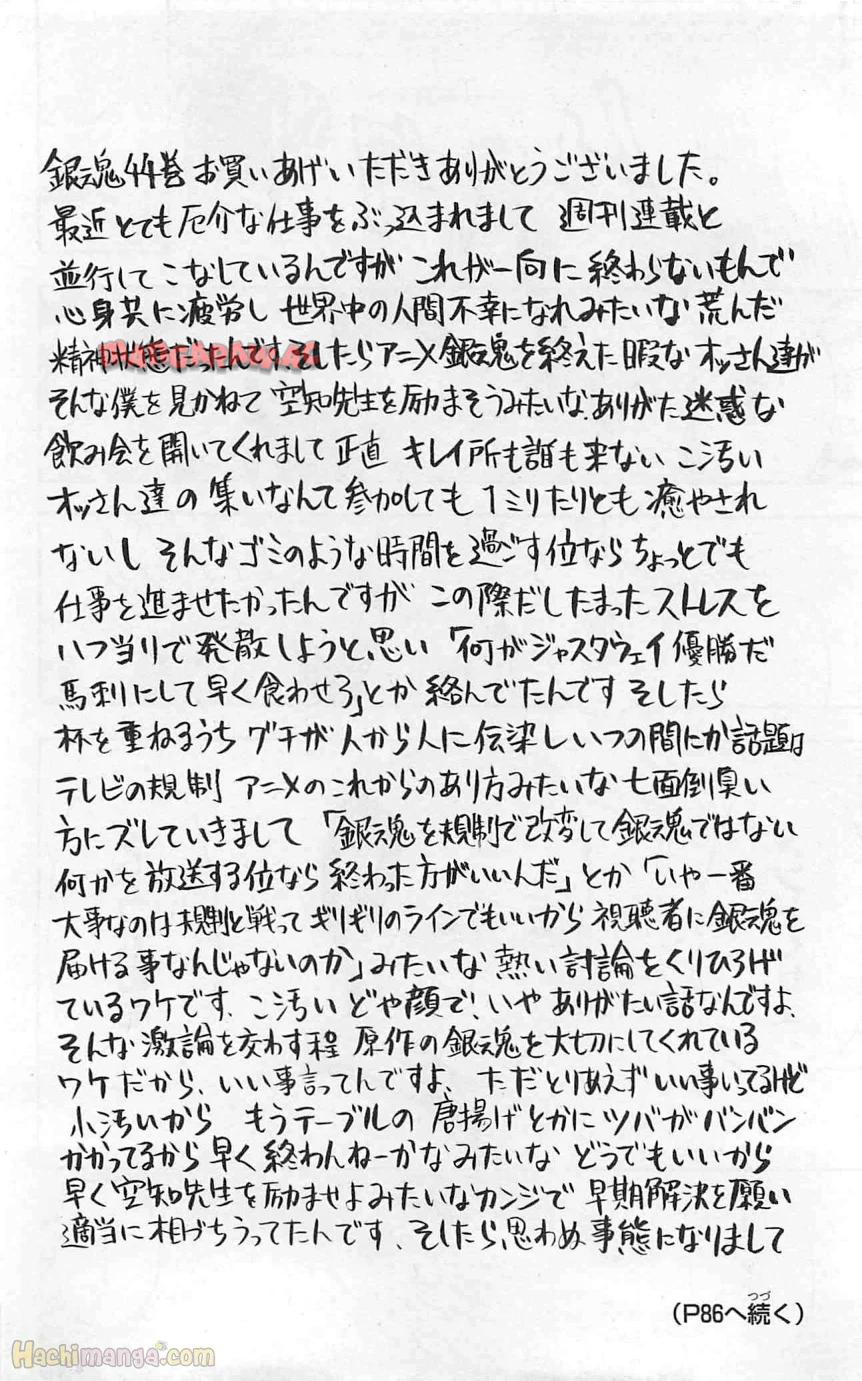 銀魂44巻 お買いあげいただきありがとうございました。
最近とても厄介な仕事をぶっ込まれまして 週刊連載と
並行してこなしているんですが これが一向に終わらないもんで
心身共に疲労し 世界中の人間不幸になれみたいな荒んだ
精神状態だったんです、そしたらアニメ銀魂を終えた暇なオッさん達が
そんな僕を見かねて 空知先生を励まそうみたいな、ありがた迷惑な
飲み会を開いてくれまして 正直 キレイ所も誰も来ない こ汚い
オッさん達の集いなんて参加しても 1ミリたりとも癒やされ
ないし そんなゴミのような時間を過ごす位なら ちょっとでも
仕事を進ませたかったんですが この際だしたまったストレスを
いつ当りで発散しようと思い「何がジャスタウェイ優勝だ
馬刺にして早く食わせろ」とか絡んでたんです そしたら
杯を重ねるうち グチが人から人に伝染し いつの間にか話題は
テレビの規制 アニメのこれからのあり方みたいな七面倒臭い
方にズレていきまして 「銀魂を規制で改変して銀魂ではない
何かを放送する位なら 終わった方がいいんだ」とか「いや一番
大事なのは規制と戦って ギリギリのラインでもいいから 視聴者に銀魂を
届ける事なんじゃないのか」みたいな 熱い討論をくりひろげ
ているワケです、こ汚い どや顔で!、いや ありがたい話なんですよ、
そんな激論を交わす程 原作の銀魂を大切にしてくれている
ワケだから、いい事言ってんですよ、ただとりあえずいい事いってるけど
小汚いから もうテーブルの唐揚げとかにツバがバンバン
かかってるから早く終わんねーかなみたいな どうでもいいから
早く空知先生を励ませよみたいなカンジで 早期解決を願い
適当に相づちうってたんです、そしたら思わぬ事態になりまして
(P86へ続く)
つづ
Hachimanga.com